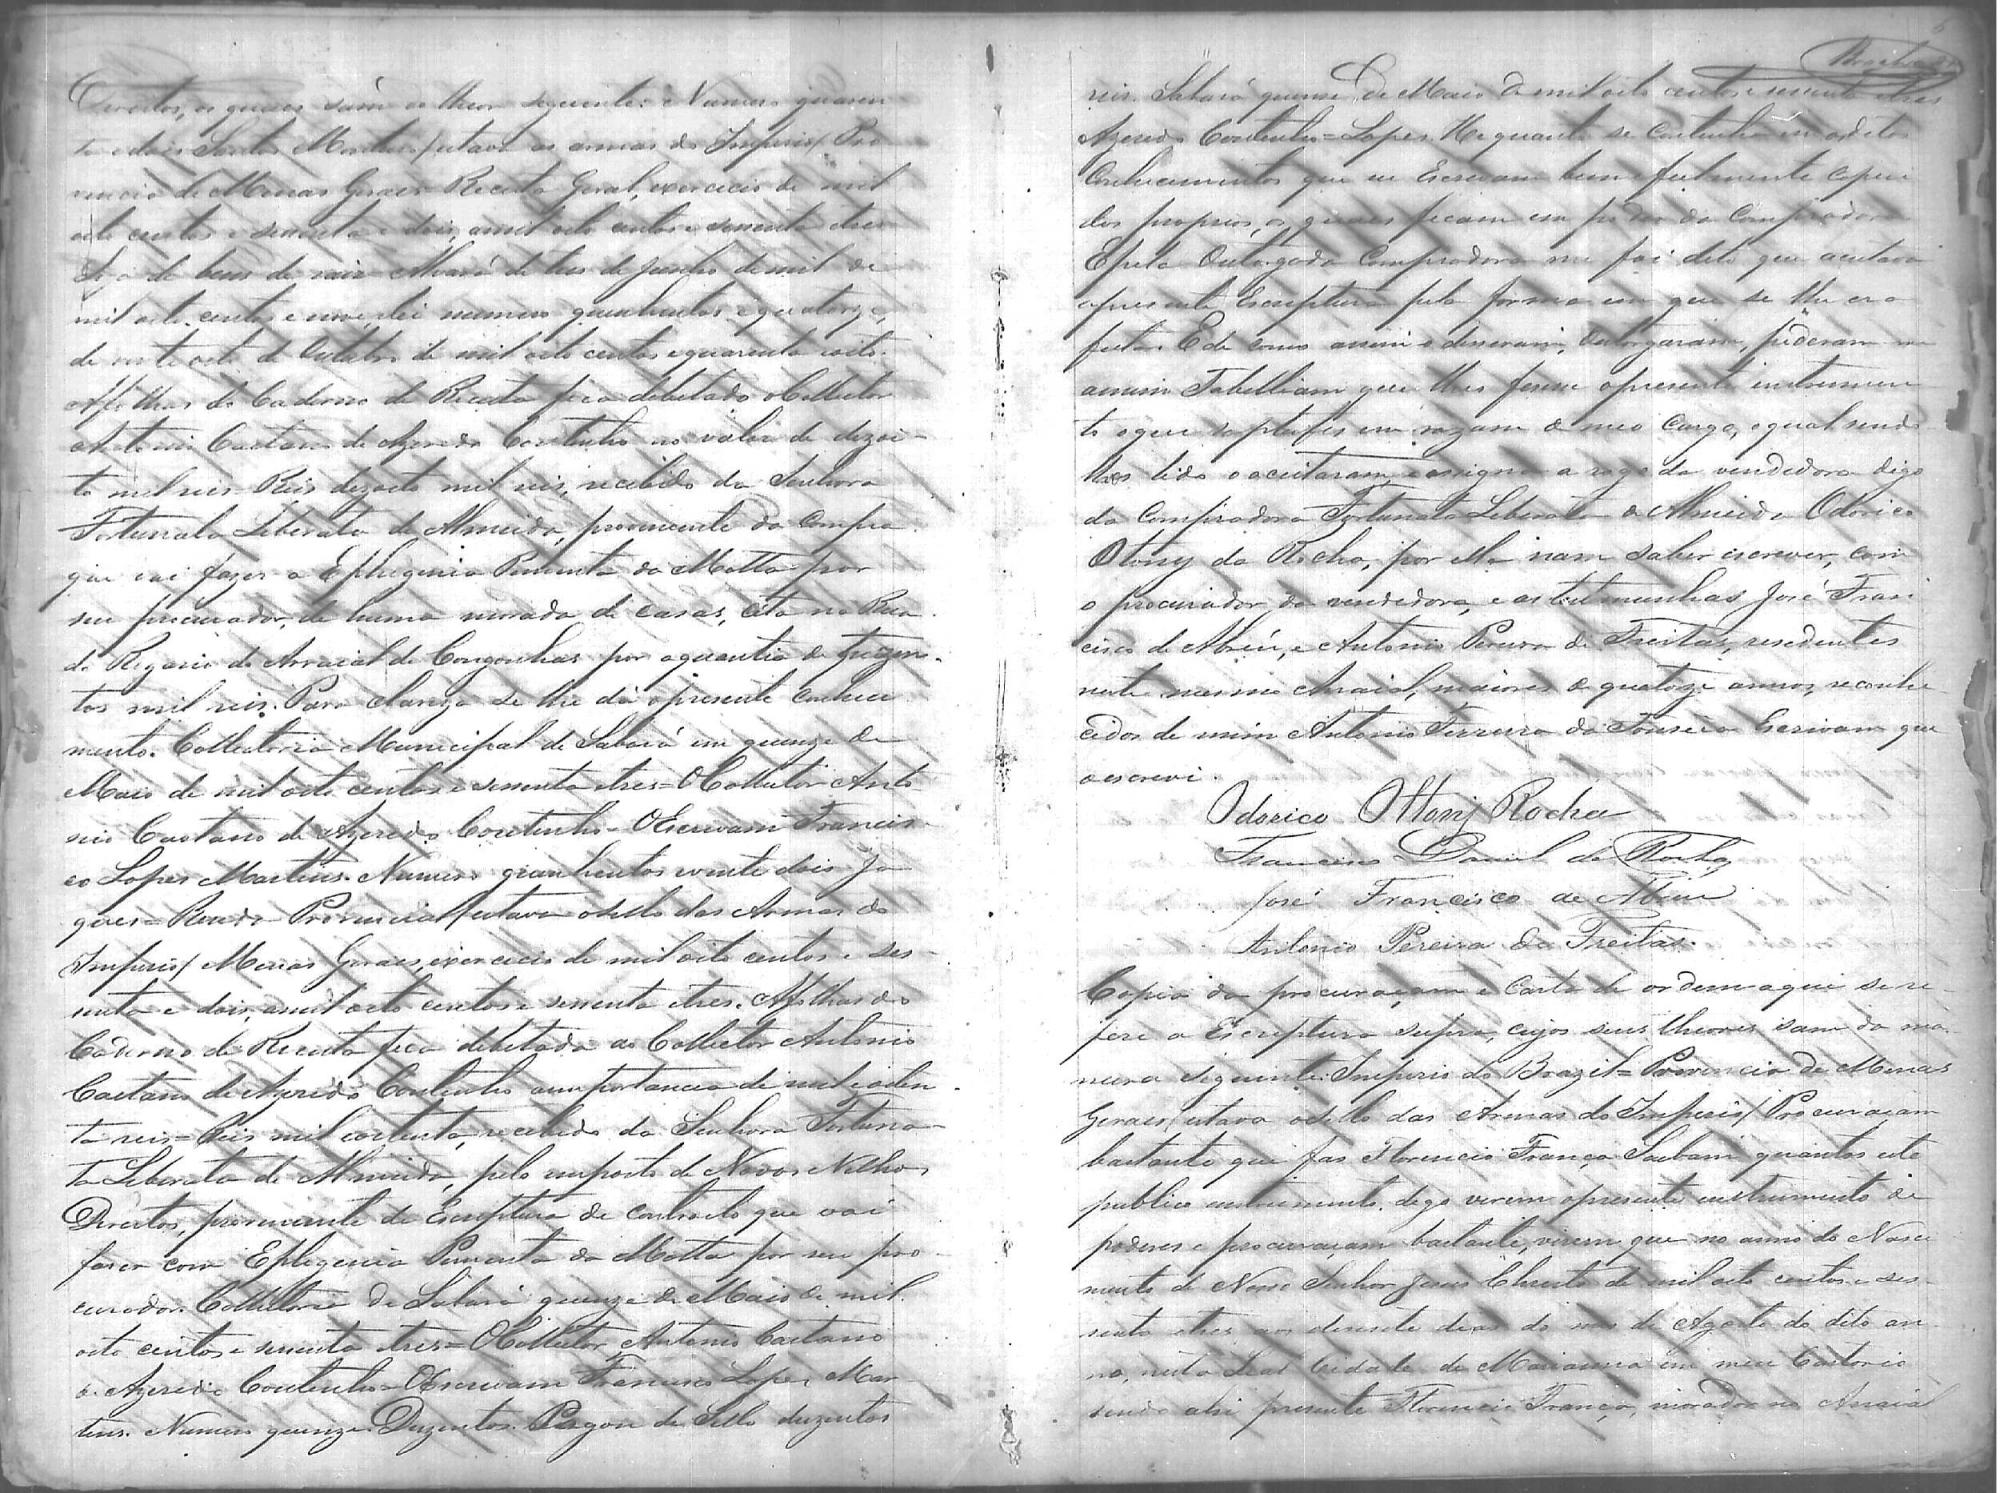 Direitos, os quaes sám do theor seguinte: Numero quaren
ta e dois Santos Martins/estava as armas do Imperio/ Pro
vincia de Minas Geraes Receita Geral, exercicio de mil
oito centos e secenta e dois, amil oito centos e secenta etres
Siza de bens de raiz Alvará de tres de Junho de mil di
mil oito centos e nove, lei numero quinhentos e quatorze,
de vinte oito de Outubro de mil oito centos e quarenta e oito.
Afolhas do Caderno de Receita fica debitado o Collector
Antonio Caetano de Azeredo Coutinho no valor de dezoi-
to mil reis Reis dezoito mil reis, recebido da Senhora
Fortunata Liberata de Almeida, proveniente da compra
que vai fazer a Ephigenia Pimenta da Motta por
seu procurador, de huma morada de casas, cita na Rua
do Rozario do Arraial de Congonhas por aquantia de trezen-
tos mil reis. Para clareza se lhe dá opresente conheci
mento. Collectoria Municipal de Sabará em quinze de
Maio de mil oito centos e secenta etres = O Collector Anto
nio Caetano de Azeredo Coutinho - OEscrivam Francis
co Lopes Martins. Numero quinhentos vinte dois Ja
ques = Renda Provincial/estava osello das Armas do
Imperio/ Minas Geraes, exercicio de mil oito centos e ses-
senta e dois, amil oito centos e secenta etres. Afolhas do
Caderno de Receita fica debitado ao Collector Antonio
Caetano de Azeredo Coutinho aimportancia de mil e oiten-
ta reis = Reis mil eoitenta, recebido da Senhora Fortuna-
ta Liberata de Almeida, pelo imposto de Novos Velhos
Direitos, proveniente da Escriptura de contracto que vai
faser com Ephigenia Pimenta da Motta por seu pro-
curador. Collectoria de Sabará quinze de Maio de mil
oito centos e secenta etres = O Collector Antonio Caetano
de Azeredo Coutinho - OEscrivam Francisco Lopes Mar
tins. Numero quinze. Duzentos. Pagou de Sello duzentos
reis. Sabará quinze de Maio de mil oito centos e secenta etres
Azeredo Coutinho = Lopes. He quanto se continha em osditos
Conhecimentos que eu Escrivam bem e fielmente copiei
dos proprios, os quaes ficam em poder da Compradora
Epela Outorgada Compradora me foi dito que aceitava
apresente Escriptura pela forma em que se lhe era
feita. E de como assim o disseram, outorgaram, pideram me
amim Tabelliam que lhes fisesse opresente instrumen
to oque acceitei fis em razam de meo cargo, equal sendo
lhes lido o aceitaram, e assigna a rogo da vendedora digo
da Compradora Fortunata Liberata de Almeida Odorico
Otony da Rocha, por ella nam saber escrever, com
o procurador da vendedora, e as testemunhas José Fran
cisco de Abreu, e Antonio Pereira de Freitas, residentes
neste mesmo Arraial, maiores de quatorze annos, reconhe
cidos de mim Antonio Ferreira da Fonseca Escrivam que
o escrevi.
Odorico Ottonj Rocha
Francisco Daniel da Rocha
José Francisco de Abreu
Antonio Pereira de Freitas.
Copia da procuraçam e Carta de ordem aque se re-
fere a Escriptura supra, cujos seus theores sam da ma
neira siguinte: Imperio do Brazil = Provincia de Minas
Geraes/estava osello das Armas do Imperio/ Procuraçam
bastante que fas Florencio França Saibam quantos este
publico instrumento, digo virem opresente instrumento de
poderes e procuraçam bastante, virem que no anno do Nasci
mento de Nosso Senhor Jesus Christo de mil oito centos e ses-
senta etres, aos desesete dias do mes de Agosto do dito an-
no, nesta Leal Cidade de Marianna em meu Cartorio
sendo ahi presente Florencio França, morador no Arraial